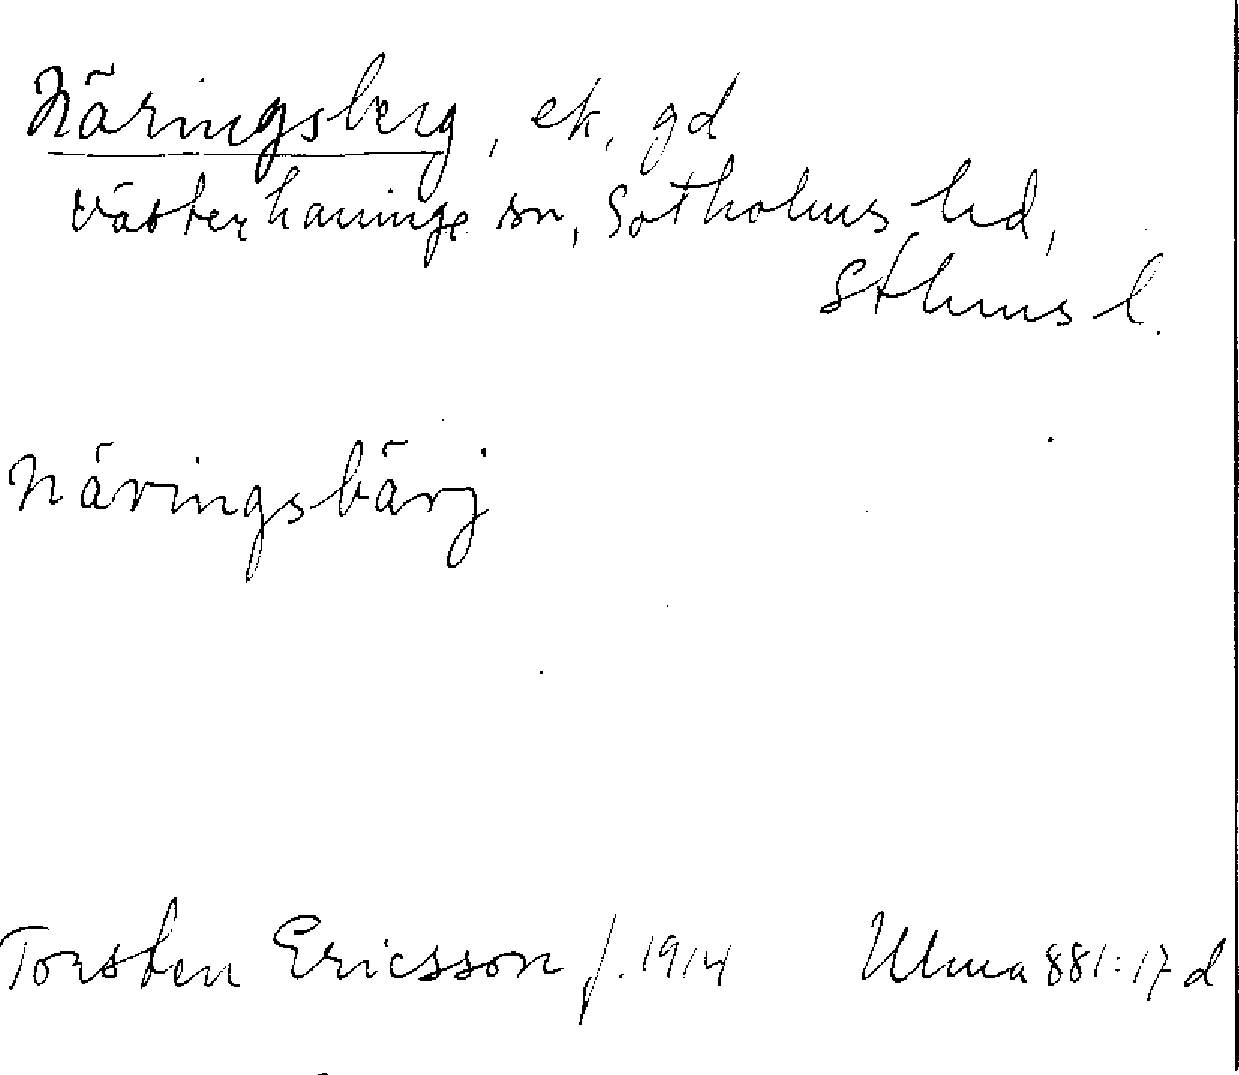 Näringsberg, ek. gd
Västerhaninge sn, Sotholms hd,
Sthms l.
Näringsbärj
Torsten Ericsson f. 1914 Ulma 881:17 d